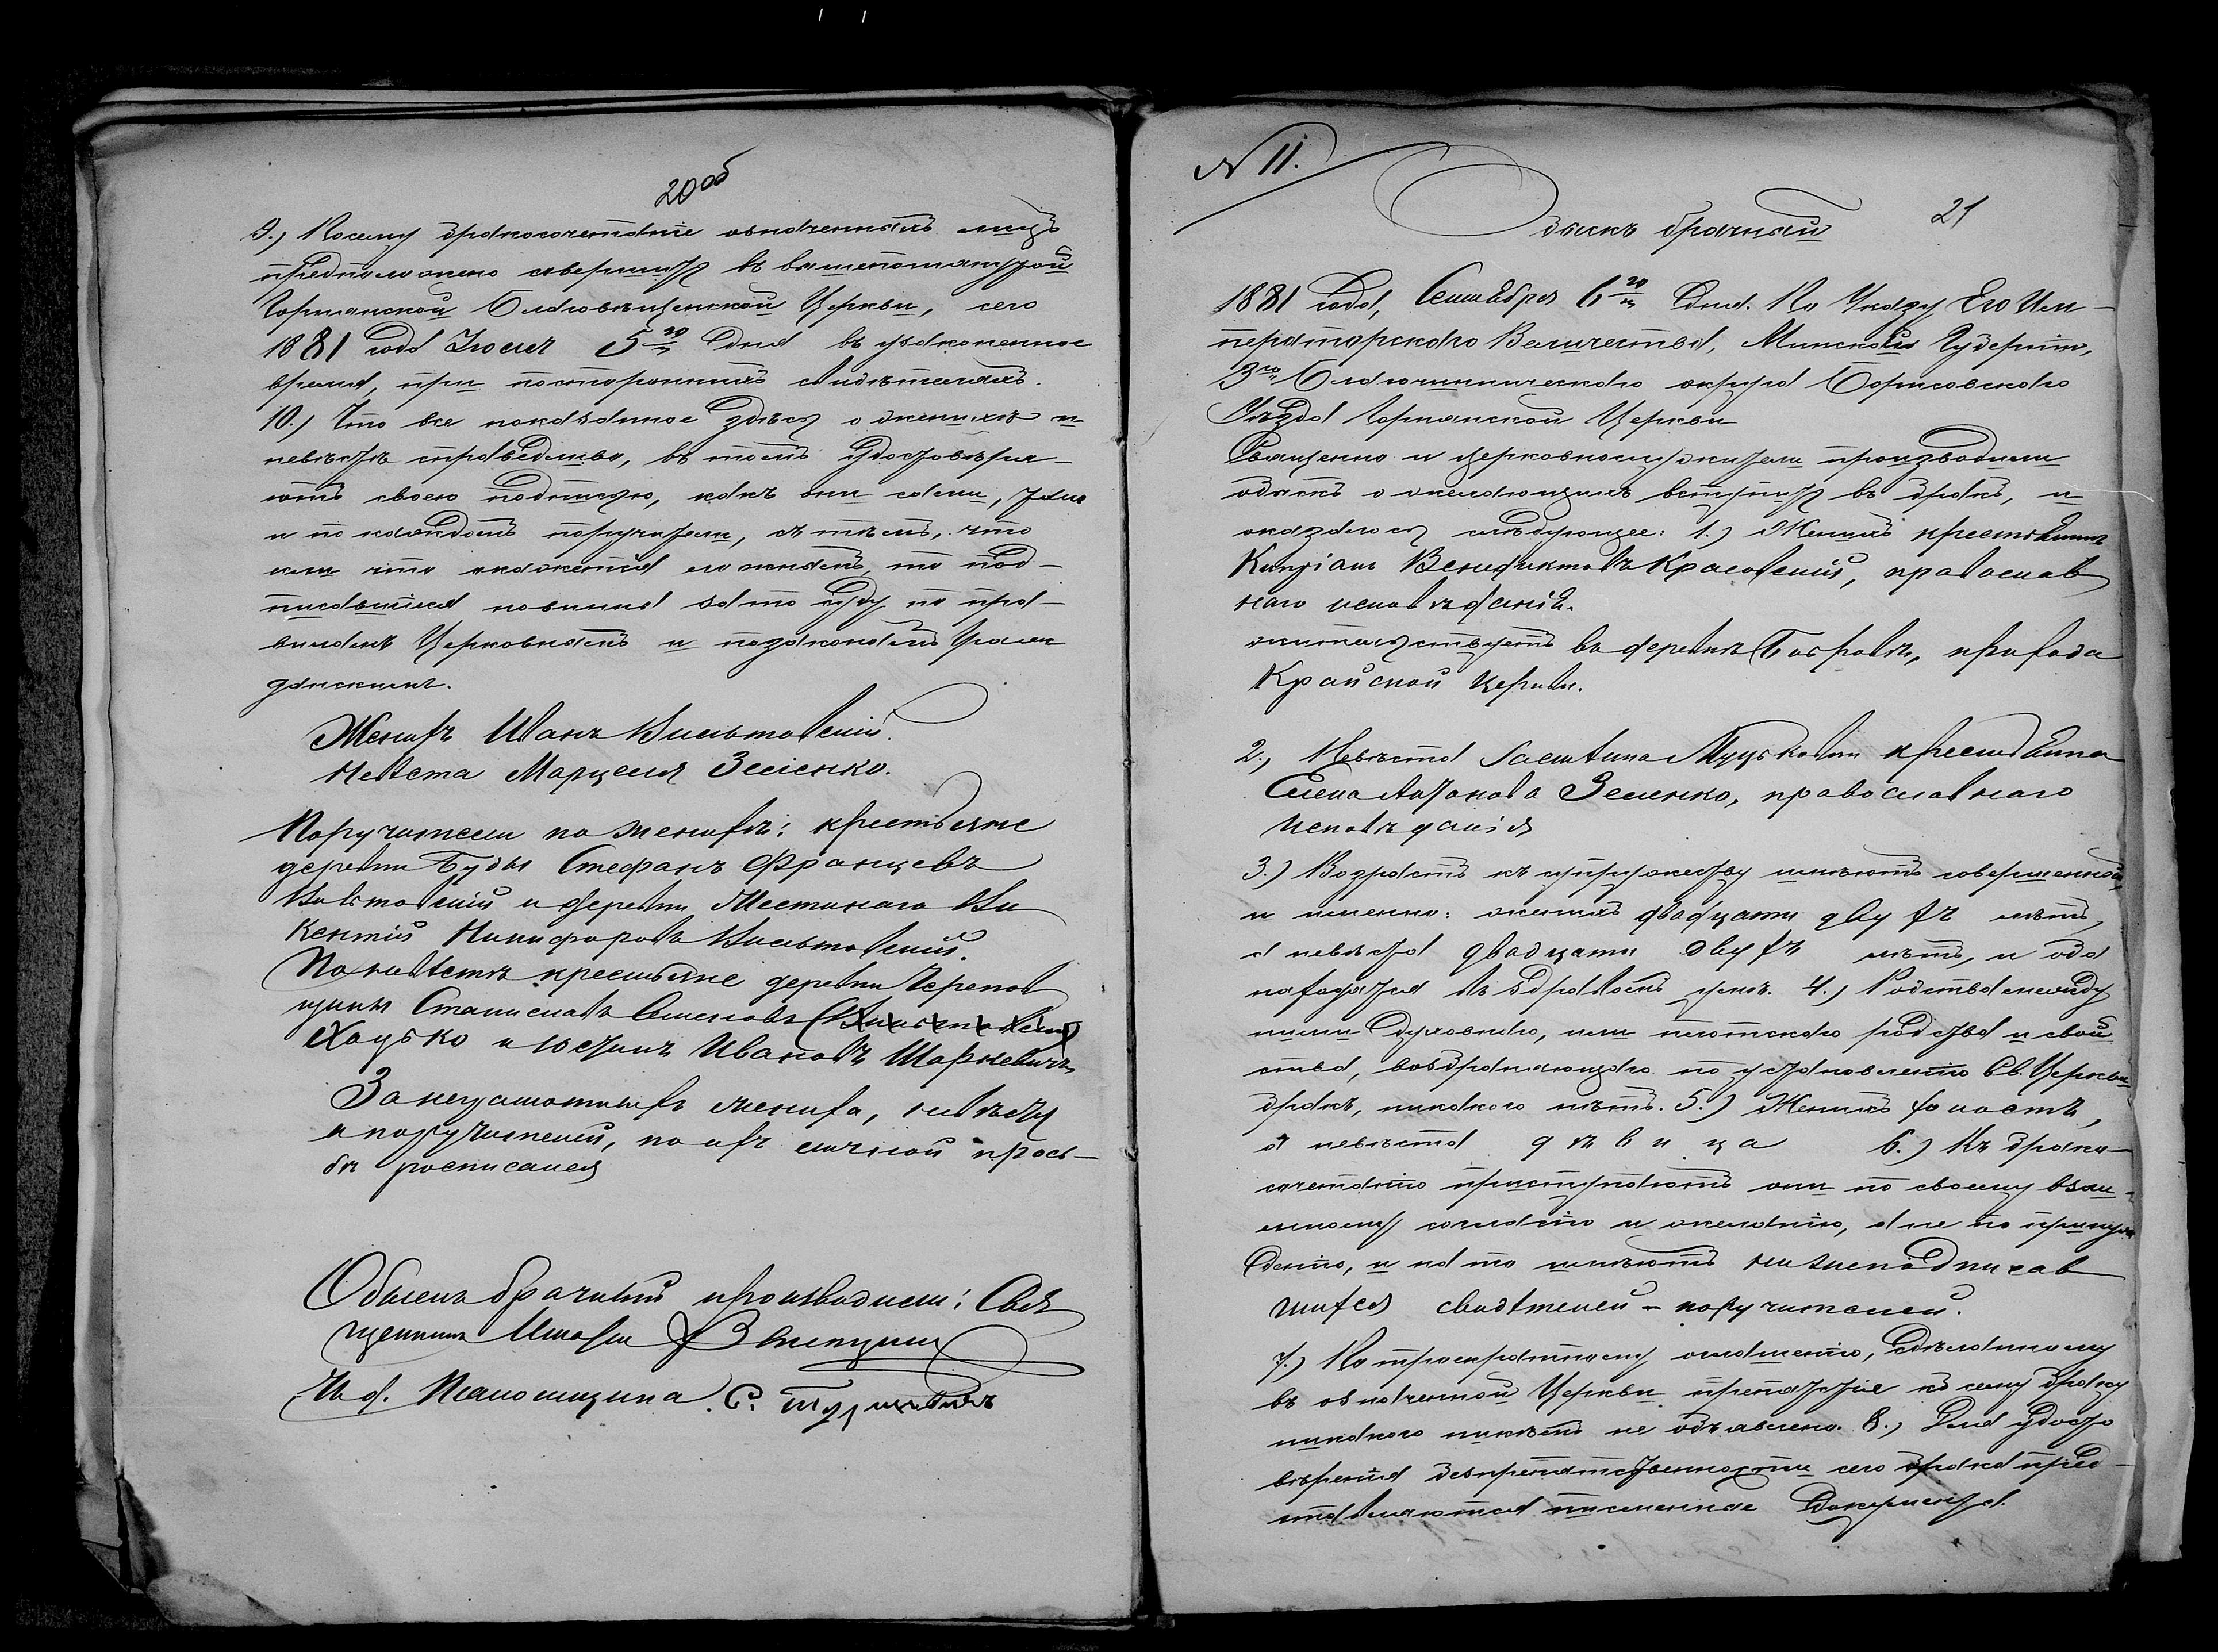 20 об
9.) Посему бракосочетаніе означенныхъ лицъ
предположено совершить въ вышепомянутой
Горманской Благовѣщенской Церкви, сего
1881 года Іюля 5го дня въ узаконенное
время, при постороннихъ свидѣтеляхъ.
10.) Что все показанное здѣсь о женихѣ и
невѣстѣ справедливо, въ томъ удостовѣря-
ютъ своею подписью, какъ они сами, такъ
и по каждомъ поручители, съ тѣмъ, что
если что окажется ложнымъ, то под-
писавшіеся повинны за то суду по пра-
виламъ Церковнымъ и по законамъ Граж
данскимъ.
Женихъ Иванъ
Невѣста Марцеля Зеленко.
Поручители по женихѣ: крестьяне
деревни Буды Стефанъ Францевъ
и деревни Ви
кентій Никифоровъ
По невѣстѣ крестьяне деревни Черепов
щины Станиславъ Семеновъ
Хацько и Юстинъ Ивановъ Шаркевичъ
За неграмотныхъ жениха, невѣсту
и поручителей, по ихъ личной прось-
бѣ росписался
Обыскъ брачный производили: Свя
щенникъ
И. д. Псаломщика С.
N 11.
21
Обыскъ брачный
1881 года, Сентября 6го дня. По Указу Его Им-
ператорскаго Величества, Минской Губерніи,
3го Благочинническаго округа Борисовскаго
Уѣзда Горманской Церкви
Священно и церковнослужители производили
обыскъ о желающихъ вступить въ бракъ, и
оказалось слѣдующее: 1.) Женихъ крестьянинъ
Кипріанъ Венедиктовъ Красовскій, православ
наго исповѣданія.
жительствуетъ въ деревнѣ Бобровѣ, прихода
Крайской церкви.
2.) Невѣста крестьянка
Елена Антонова Зеленко, православнаго
исповѣданія
3.) Возрастъ къ супружеству имѣютъ совершенный,
и именно: женихъ двадцати двухъ лѣтъ,
а невѣста двадцати двухъ лѣтъ, и оба
находятся въ здравомъ умѣ. 4.) Родства между
ними духовнаго, или плотскаго родства и свой
ства, возбраняющаго по установленію Св. Церкви
бракъ, никакого нѣтъ. 5.) Женихъ холостъ,
а невѣста дѣвица 6.) Къ брако-
сочетанію приступаютъ они по своему взаи-
мному согласію и желанію, а не по принуж
денію, и на то имѣютъ нижеподписав
шихся свидѣтелей - поручителей.
7.) По троекратному оглашенію, сдѣланному
въ означенной Церкви, препятствіе къ сему браку
никакого никѣмъ не объявлено. 8.) Для удосто
вѣренія безпрепятственности сего брака пред-
ставляются письменные документы.